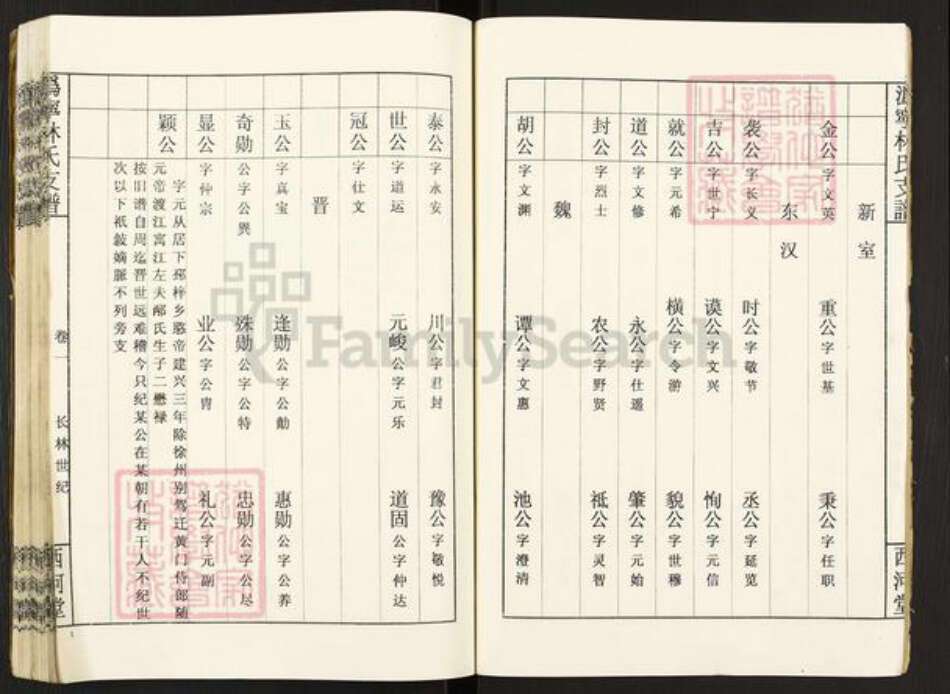 新室
金公字文英 重公字世基 秉公字任职
东汉
袭公字长义 时公字敬节 丞公字延览
吉公字世宁 谟公字文兴 恂公字元信
就公字元希 横公字令游 貌公字世穆
道公字文修 永公字仕遥 肇公字元始
封公字烈士 农公字野贤 祗公字灵智
魏
胡公字文渊 谭公字文惠 池公字澄清
西河堂
泰公字永安 川公字君封 豫公字敬悦
世公字道运 元峻公字元乐 道固公字仲达
冠公字仕文
晋
玉公字真宝 逢勋公字公勣 惠勋公字公养
奇勋公字公巽 殊勋公字公特 忠勋公字公尽
显公字仲宗 业公字公胄 礼公字元副
颖公
字元从居下邳梓乡愍帝建兴三年除徐州别驾迁黄门侍郎随
元帝渡江寓江左夫邴氏生子二懋禄
按旧谱自周迄晋世远难稽今只纪某公在某朝有若干人不纪世
次以下祇叙嫡脈不列旁支
林氏支谱
卷一
长林世纪
西河堂
FamilySearch